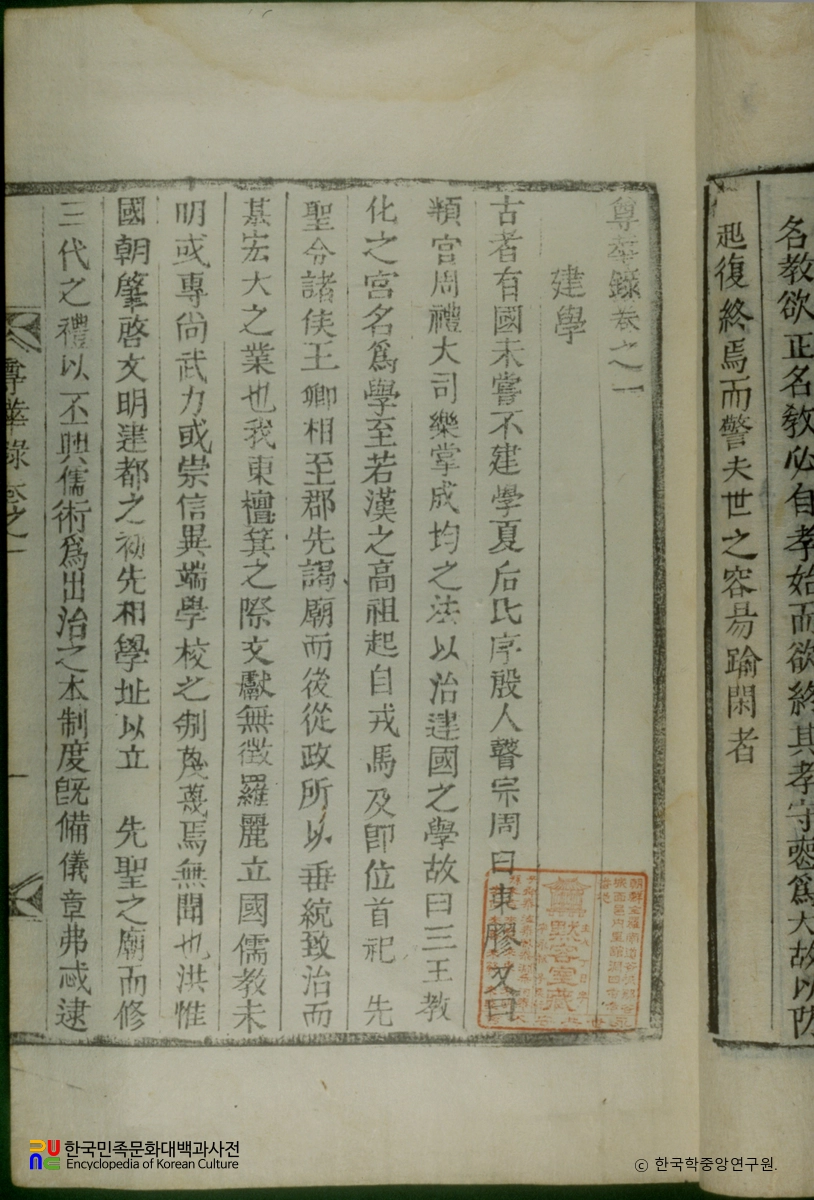 名教欲正名教必自孝始而欲終其孝守䘮爲大故以防
起復終焉而警夫世之容易踰閑者
尊華錄卷之一
建學
古者有國未嘗不建學夏后氏序殷人瞽宗周曰東膠又曰
頖宮周禮大司樂掌成均之法以治建國之學故曰三王敎
化之宮名爲學至若漢之高祖起自戎馬及卽位首祀 先
聖令諸侯王卿相至郡先謁廟而後從政所以垂統致治而
基宏大之業也我東檀箕之際文獻無徵羅麗立國儒教未
明或專尚武力或崇信異端學校之制蔑蔑焉無聞也洪惟
國朝肇啓文明建都之初先相學址以立 先聖之廟而修
三代之禮以丕興儒術爲出治之本制度旣備儀章弗忒逮
尊華錄 卷之一 一
默容室藏
한국민족문화대백과사전
Encyclopedia of Korean Culture
© 한국학중앙연구원.